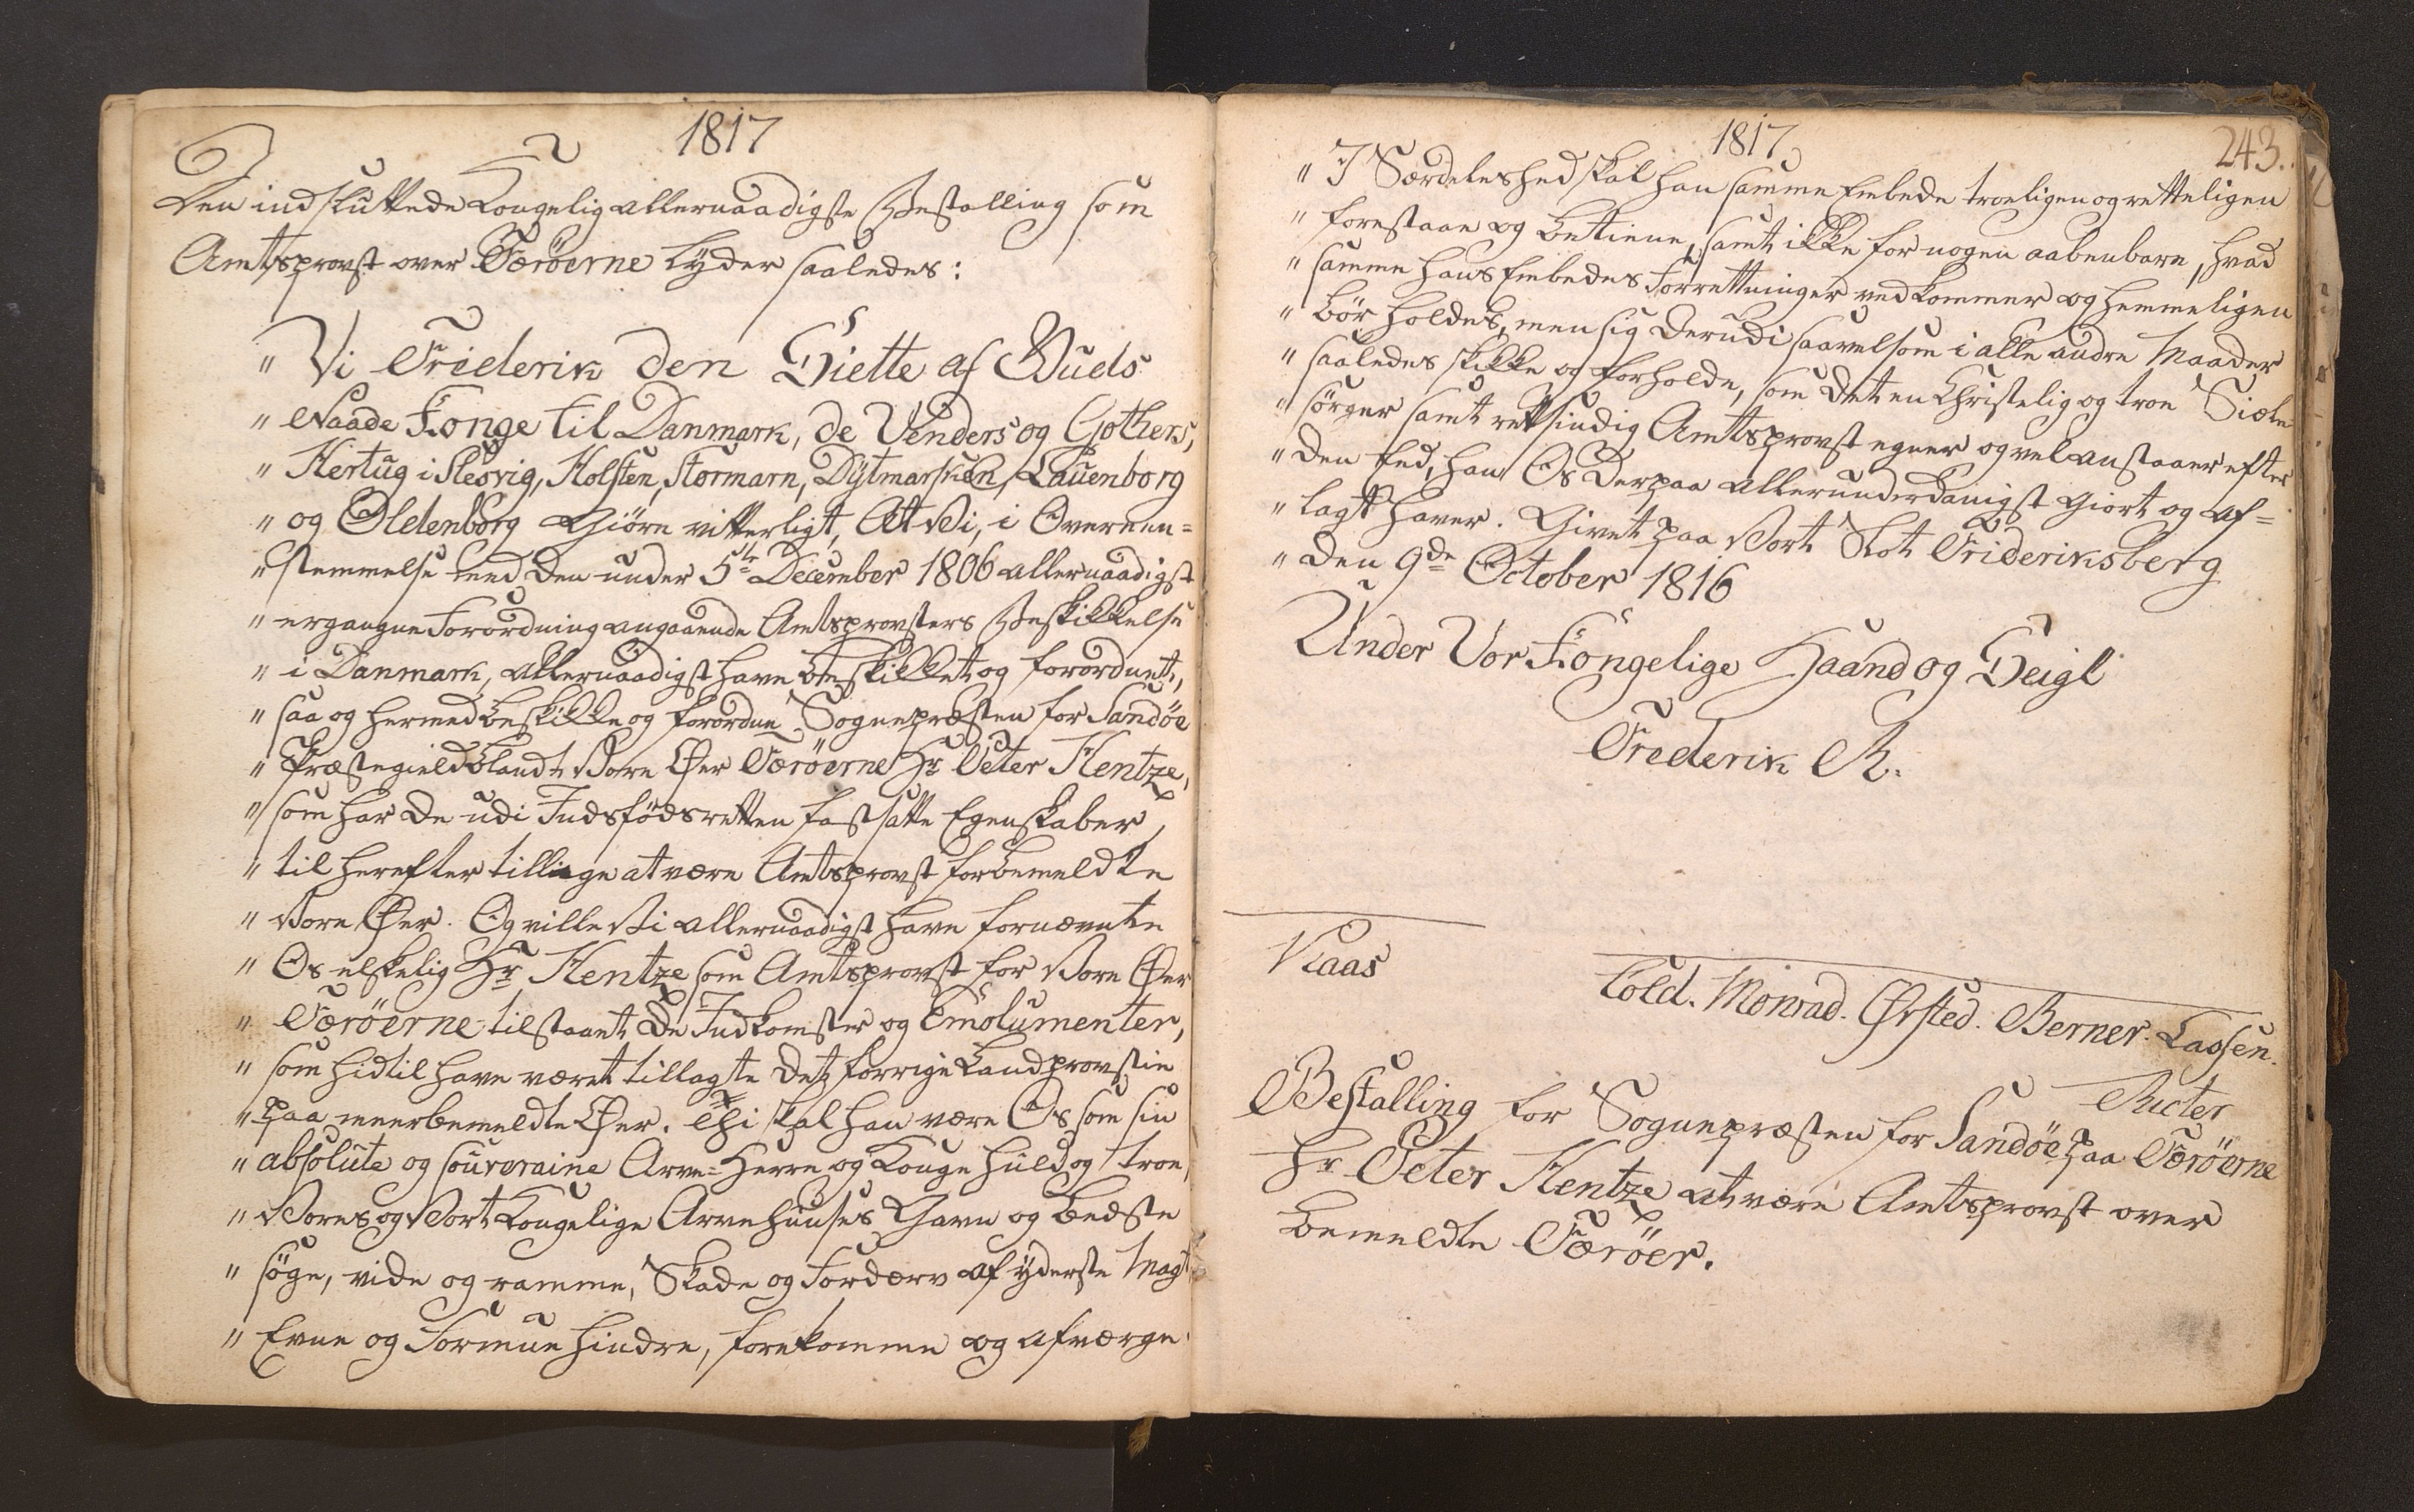 1817
Den indsluttede Kongelig allernaadigste Bestalling som
Amtsprovst over Færöerne lyder saaledes:
" Vi Friderik den Siette af Guds
" Naade Konge til Danmark, de Venders og Gothers,
" Hertug i Slesvig, Holsten, Stormarn, Dytmarsken, Lauenborg
" og Oldenborg Giöre vitterligt, At Vi, i Overeen-
" stemmelse med den under 5te December 1806 allernaadigst
" ergangne Forordning angaaende Amtsprovsters Beskikkelse
" i Danmark, allernaadigst have beskikket og forordnet,
" saa og hermed beskikke og forordne Sognepræsten for Sandöe
" Præstegield blandt Vore Øer Færöerne Hr Peter Hentze,
" som har de udi Indfödsretten fastsatte Egenskaber,
" til herefter tillige at være Amtsprovst for bemeldte
" Vore Øer. Og ville Vi allernaadigst have fornævnte
" Os elskelig Hr Hentze som Amtsprovst for Vore Øer
" Færöerne tilstaaet de Indkomster og Emolumenter,
" som hidtil have været tillagte det forrige Landprovstie
" paa meerbemeldte Øer. Thi skal han være Os som sin
" absolute og souveraine Arve-Herre og Konge huld og troe,
" Vores og Vort Kongelige Arvehuuses Gavn og Bedste
" söge, vide og ramme, Skade og Fordærv af yderste Magt
" Evne og Formue hindre, forekomme og afværge.
1817
243.
" I Særdeleshed skal han samme Embede troeligen og retteligen
" forestaae og betiene, samt ikke for nogen aabenbare, hvad
" samme hans Embedes Forrettninger vedkommer og hemmeligen
" bör holdes, men sig derudi saavelsom i alle andre Maader
" saaledes skikke og forholde, som det en Christelig og troe Siæle
" sörger samt retsindig Amtsprovst egner og vel anstaaer efter
" den Eed, han Os derpaa allerunderdanigst giort og af-
" lagt haver. Givet paa Vort Slot Frideriksberg
" den 9de October 1816
Under Vor Kongelige Haand og Seigl
Frederik R.
Kaas
Cold. Monrad. Ørsted. Berner. Lassen.
Richter
Bestalling for Sognepræsten for Sandöe paa Færöerne
Hr Peter Hentze at være Amtsprovst over
bemeldte Færöer.